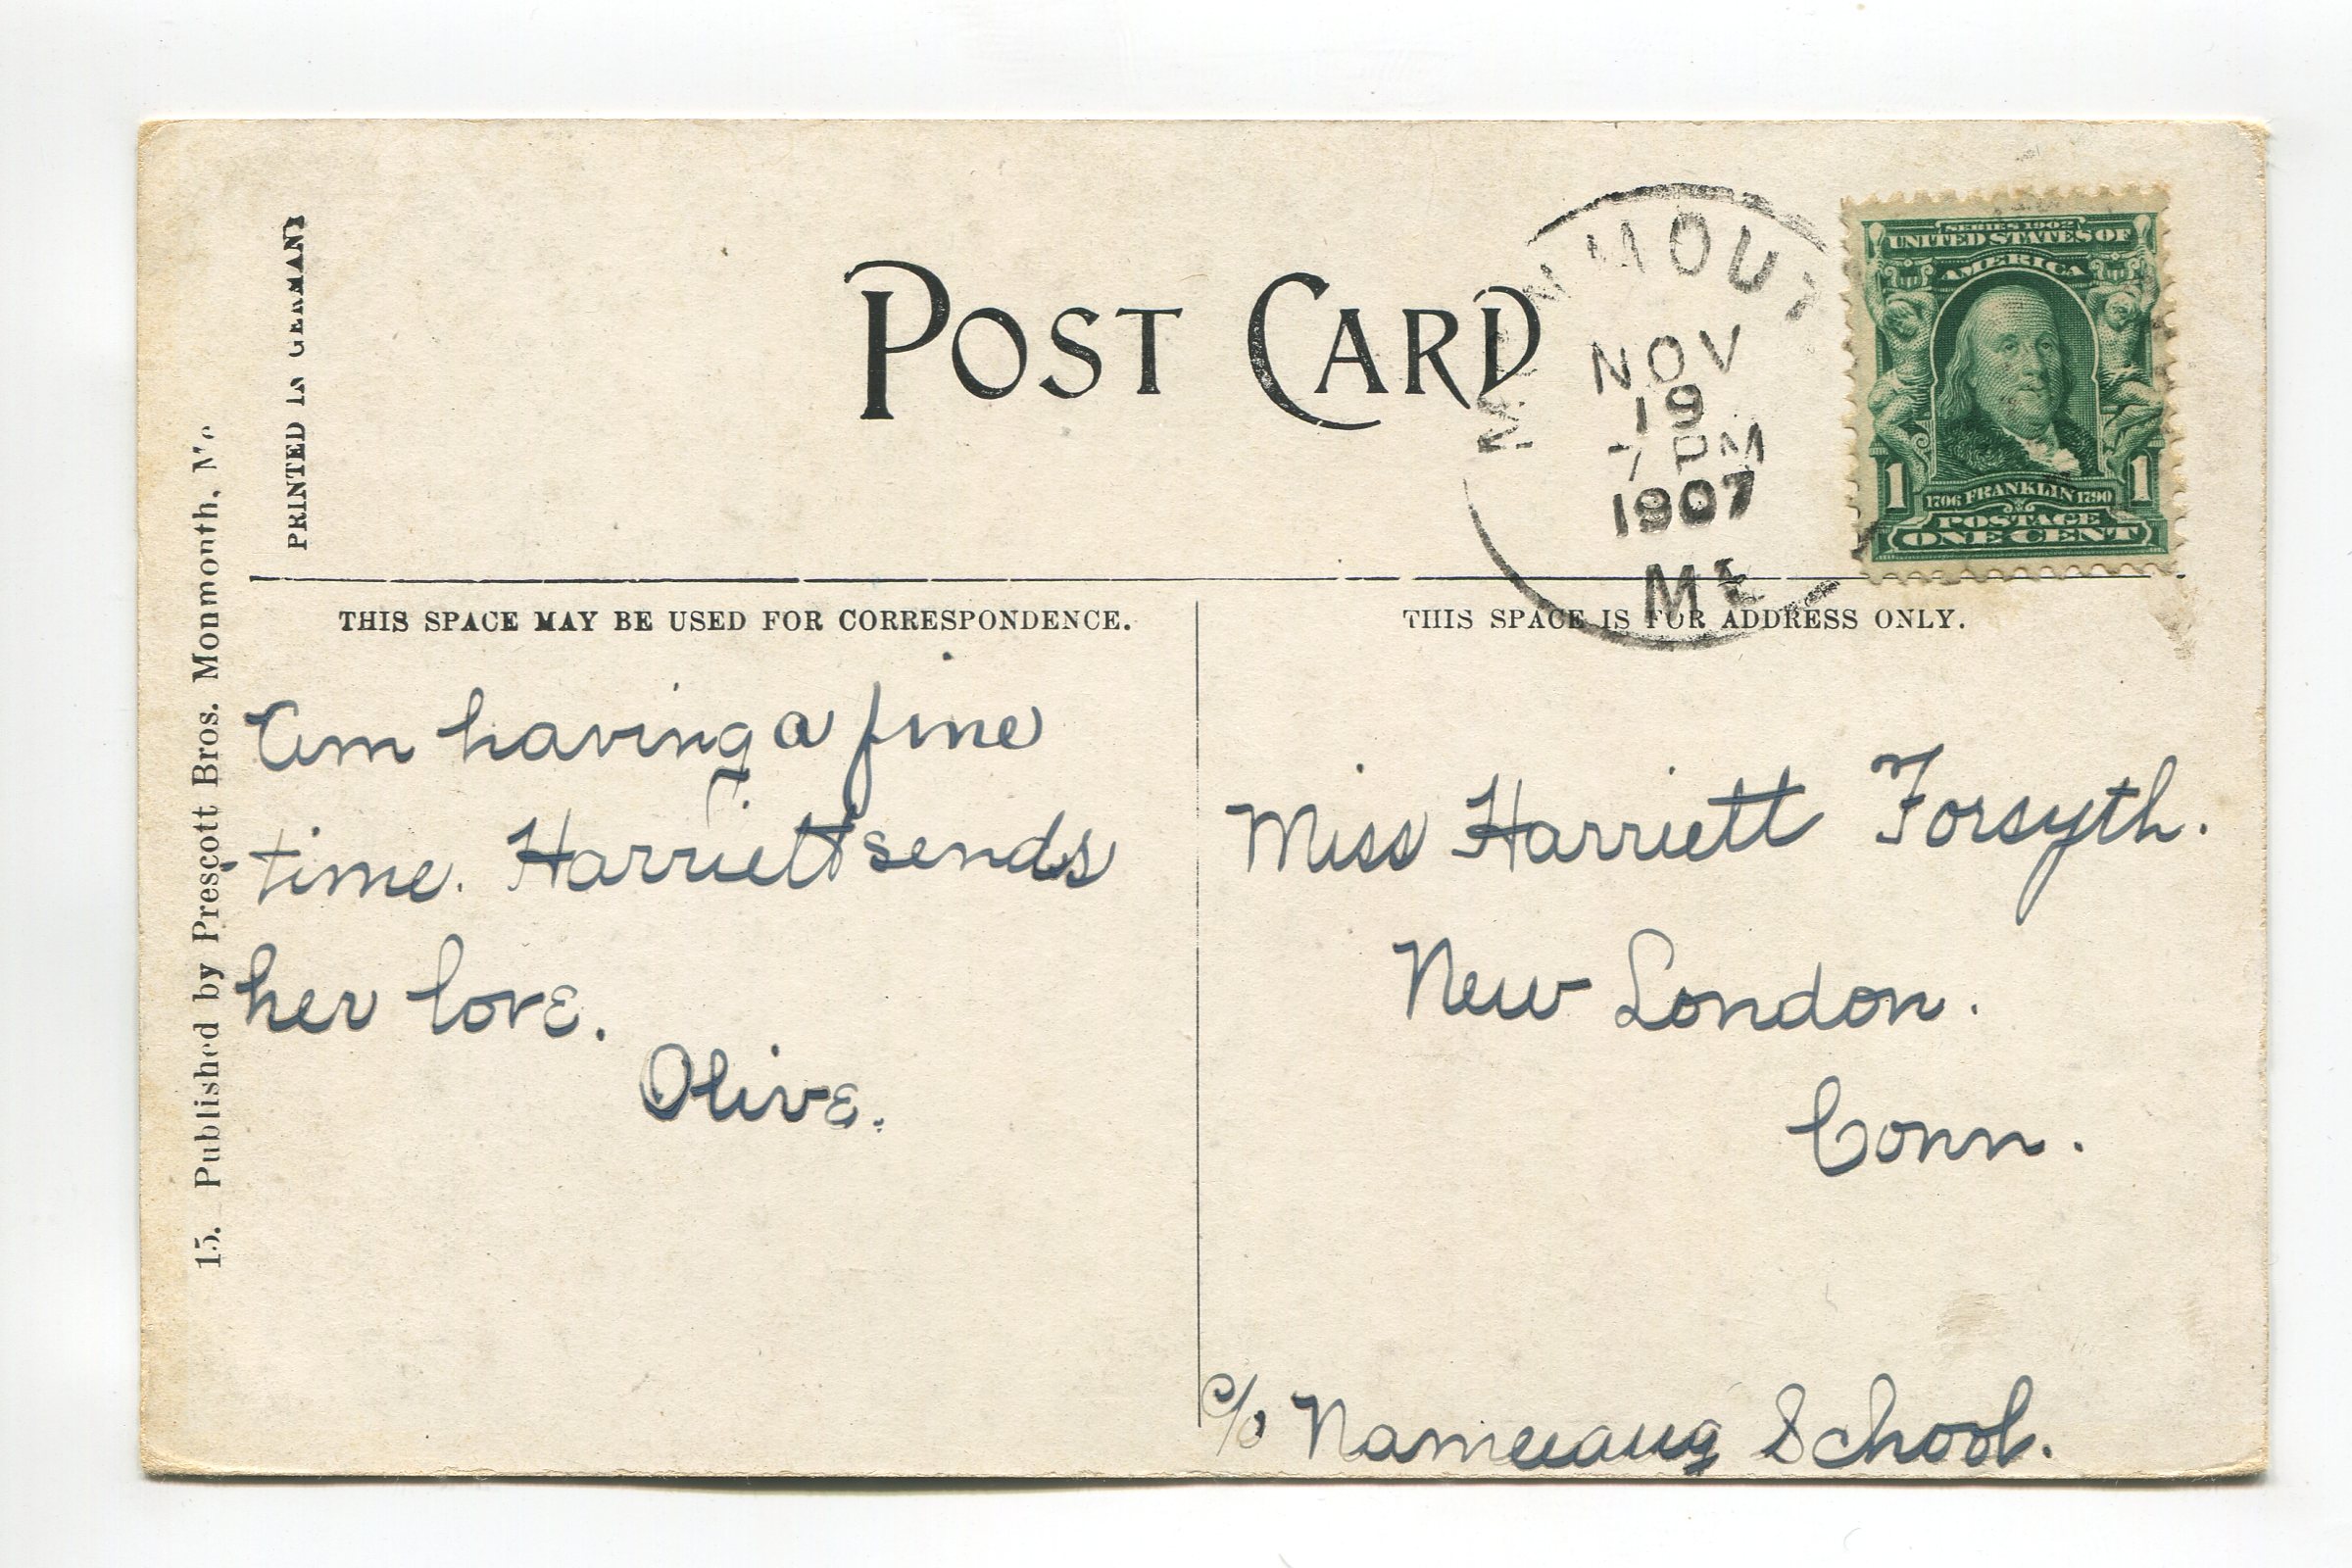 PRINTED IN GERMANY
15. Published by Prescott Bros. Monmouth, Me
POST CARD
MONMOUTH
NOV
19
7 PM
1907
ME
SERIES 1902
UNITED STATES OF
AMERICA
1706 FRANKLIN 1790
1 1
POSTAGE
ONE CENT
THIS SPACE MAY BE USED FOR CORRESPONDENCE.
Am having a fine
time. Harriett sends
her love.
Olive.
THIS SPACE IS FOR ADDRESS ONLY.
Miss Harriett Forsyth.
New London.
Conn.
c/o Nameaug School.